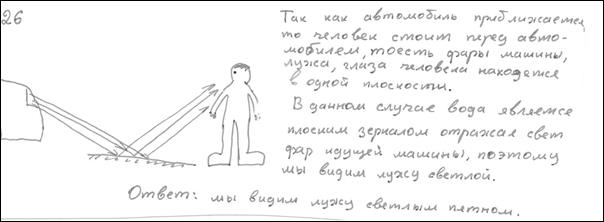 26
Так как автомобиль приближается
то человек стоит перед авто-
мобилем, тоесть фары машины,
лужа, глаза человека находятся
в одной плоскости.
В данном случае вода являетсе
плоским зеркалом отражая свет
фар идущей машины, поэтому
мы видим лужу светлой.
Ответ: мы видим лужу светлым пятном.